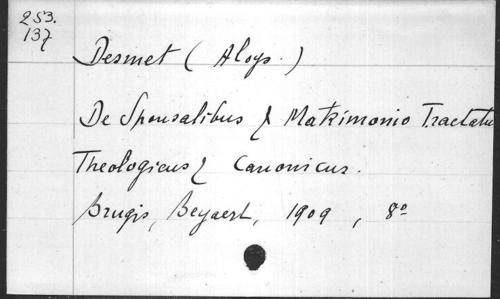 253.
137
Desmet ( Aloys. )
De Sponsalibus & Matrimonio Tractatu
Theologicus & Canonicus.
Brugis, Beyaert, 1909, 8º